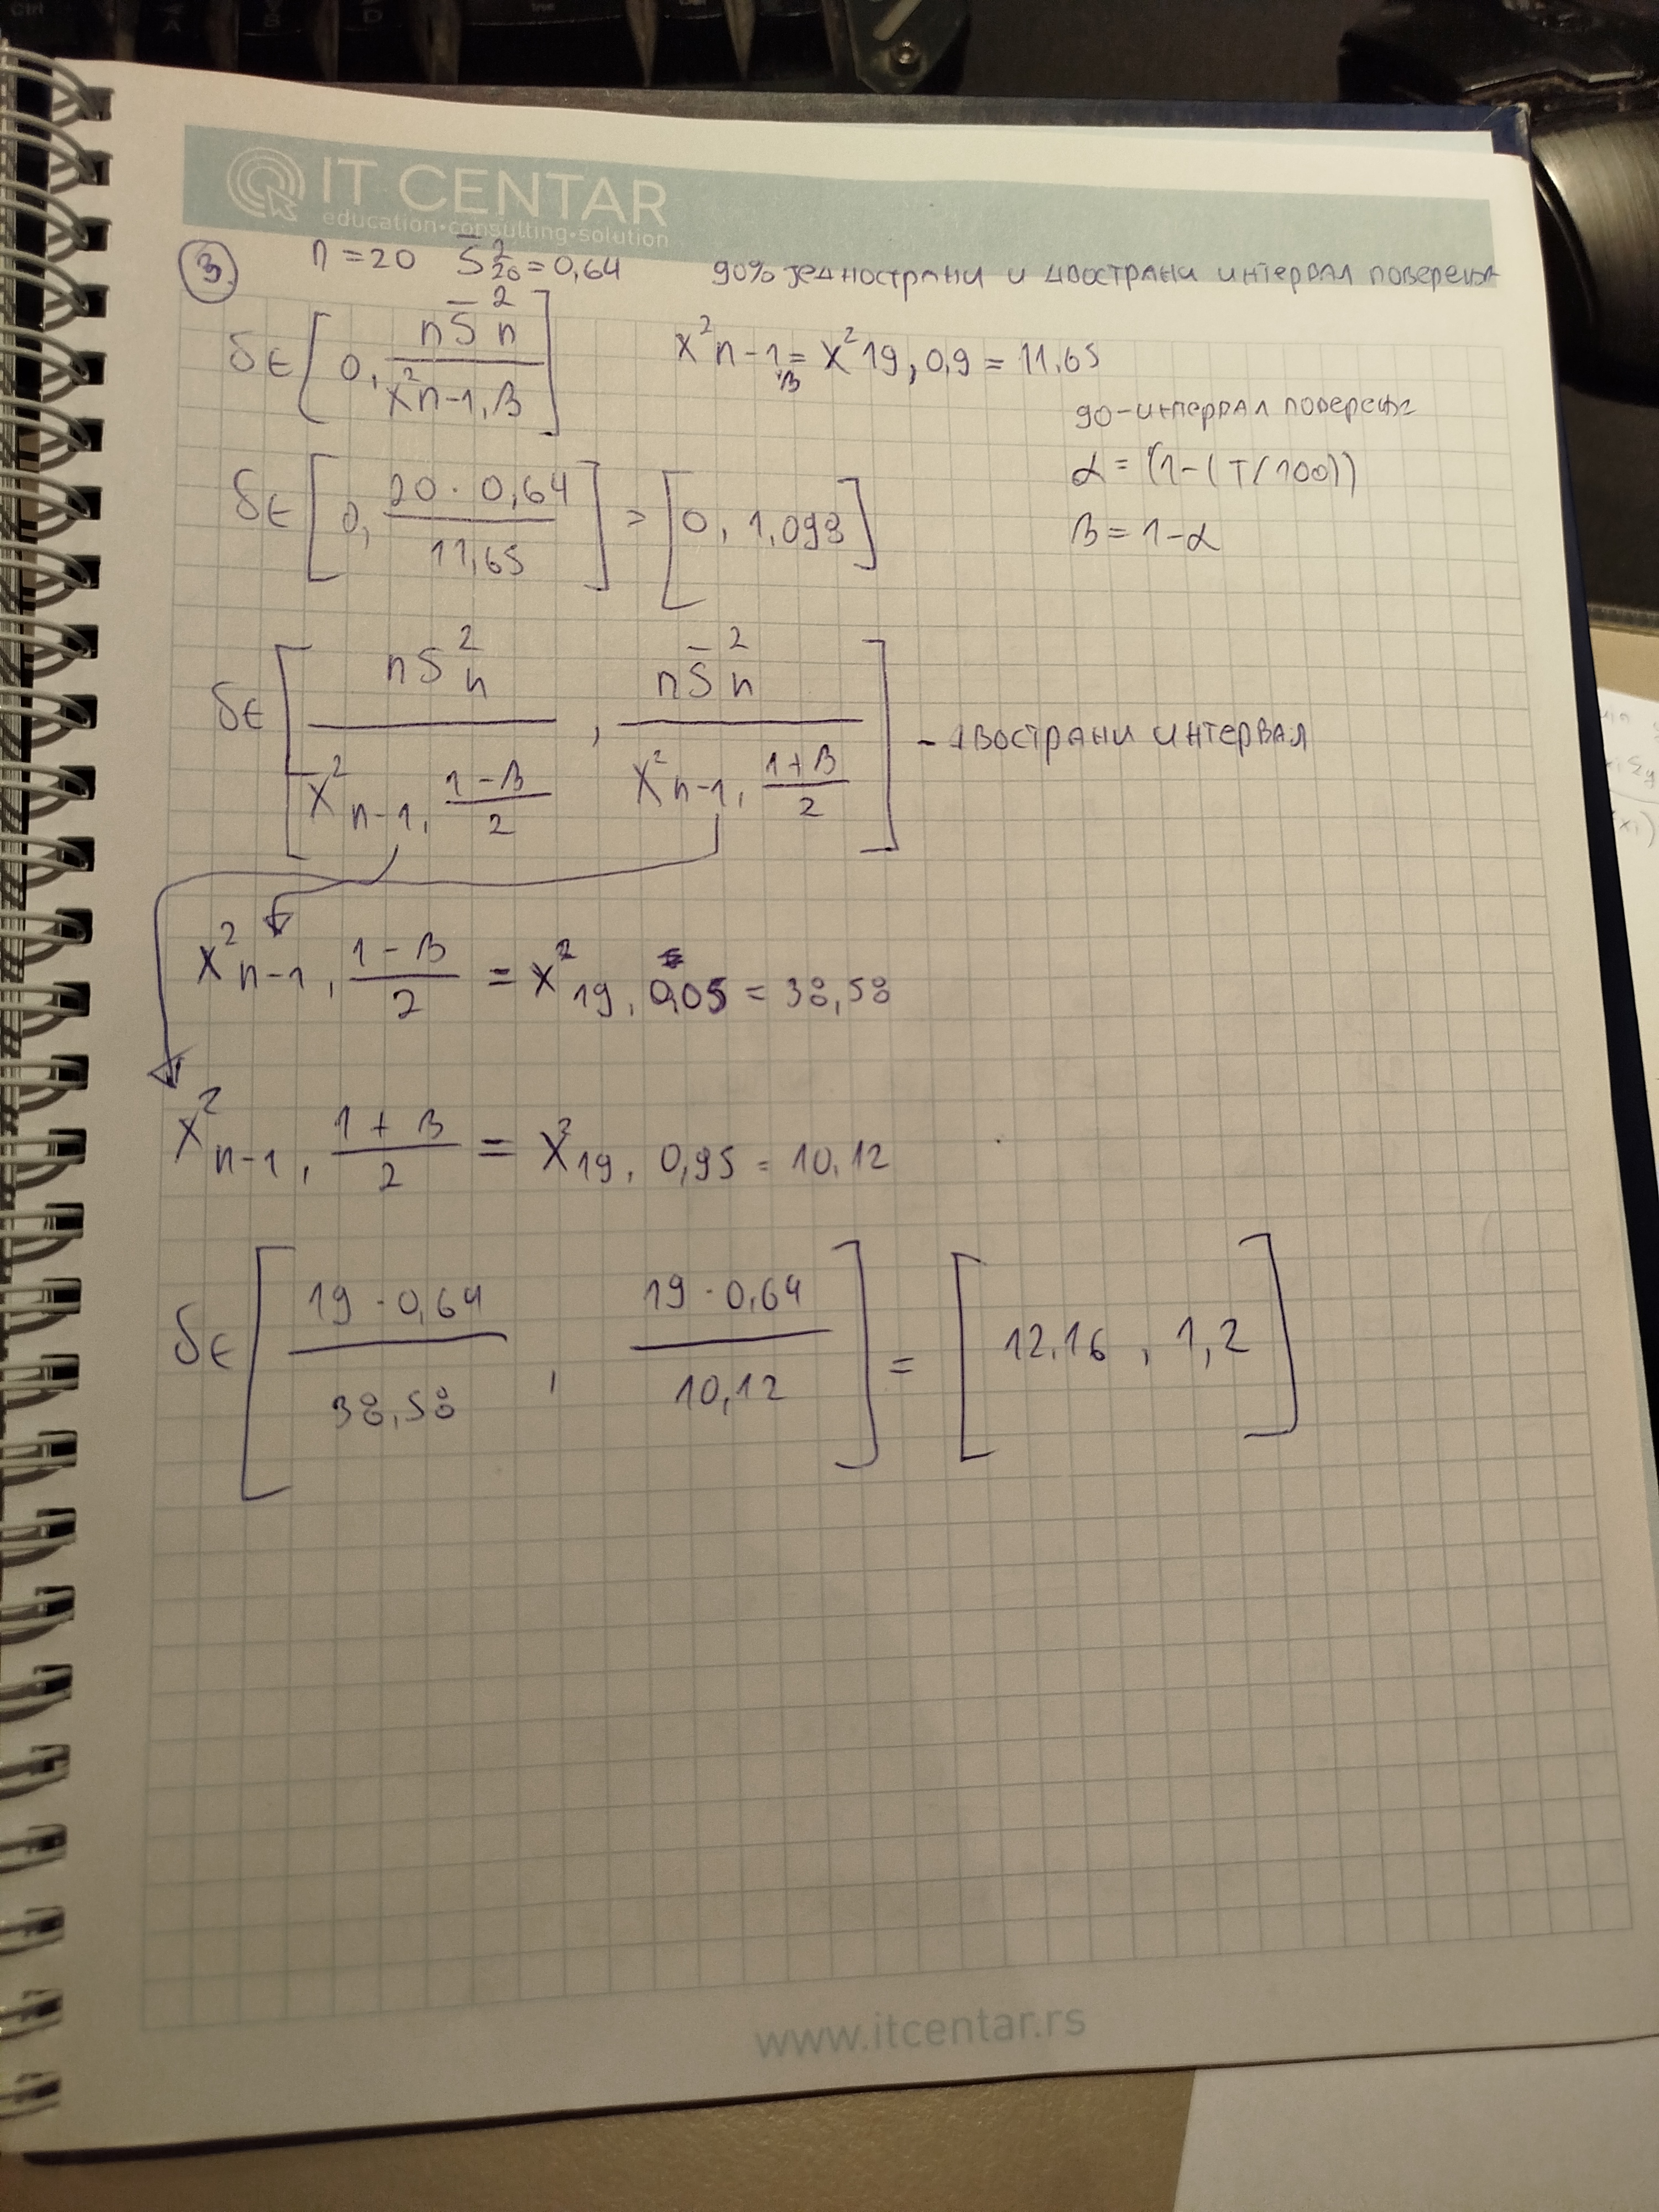 IT CENTAR
education•consulting•solution
3. n = 20 S̄²₂₀ = 0,64 90% једнострани и двострани интервал поверења
δ ∈ [0, nS̄²n / χ²n-1, β] χ²n-1, β = χ²19, 0,9 = 11,65
90-интервал поверења
δ ∈ [0, 20 · 0,64 / 11,65] = [0, 1,098] α = (1-(T/100))
β = 1-α
δ ∈ [nS²n / χ²n-1, (1-β)/2 , nS̄²n / χ²n-1, (1+β)/2] - двострани интервал
χ²n-1, (1-β)/2 = χ²19, 0,05 = 38,58
χ²n-1, (1+β)/2 = χ²19, 0,95 = 10,12
δ ∈ [19 · 0,64 / 38,58 , 19 · 0,64 / 10,12] = [12.16 , 1,2]
www.itcentar.rs